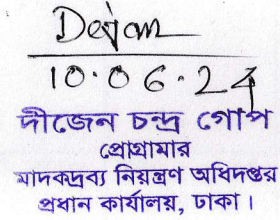 Dejom
10.06.24
দীজেন চন্দ্র গোপ
প্রোগ্রামার
মাদকদ্রব্য নিয়ন্ত্রণ অধিদপ্তর
প্রধান কার্যালয়, ঢাকা।